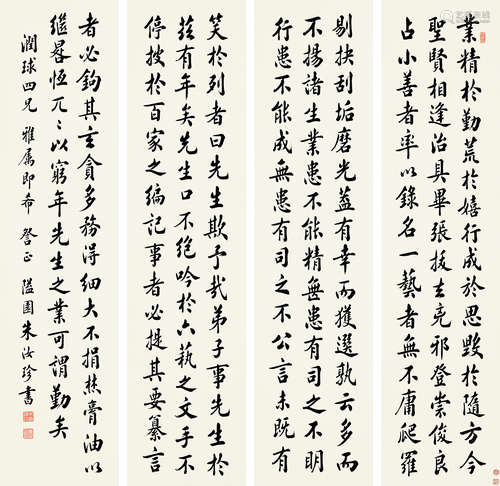 業精於勤荒於嬉行成於思毀於隨方今
聖賢相逢治具畢張拔去兇邪登崇俊良
占小善者率以錄名一藝者無不庸爬羅
剔抉刮垢磨光蓋有幸而獲選孰云多而
不揚諸生業患不能精無患有司之不明
行患不能成無患有司之不公言未既有
笑於列者曰先生欺予哉弟子事先生於
茲有年矣先生口不絕吟於六藝之文手不
停披於百家之編記事者必提其要纂言
者必鉤其玄貪多務得細大不捐焚膏油以
繼晷恆兀〻以窮年先生之業可謂勤矣
潤球四兄 雅屬即希 詧正 隘園朱汝珍書